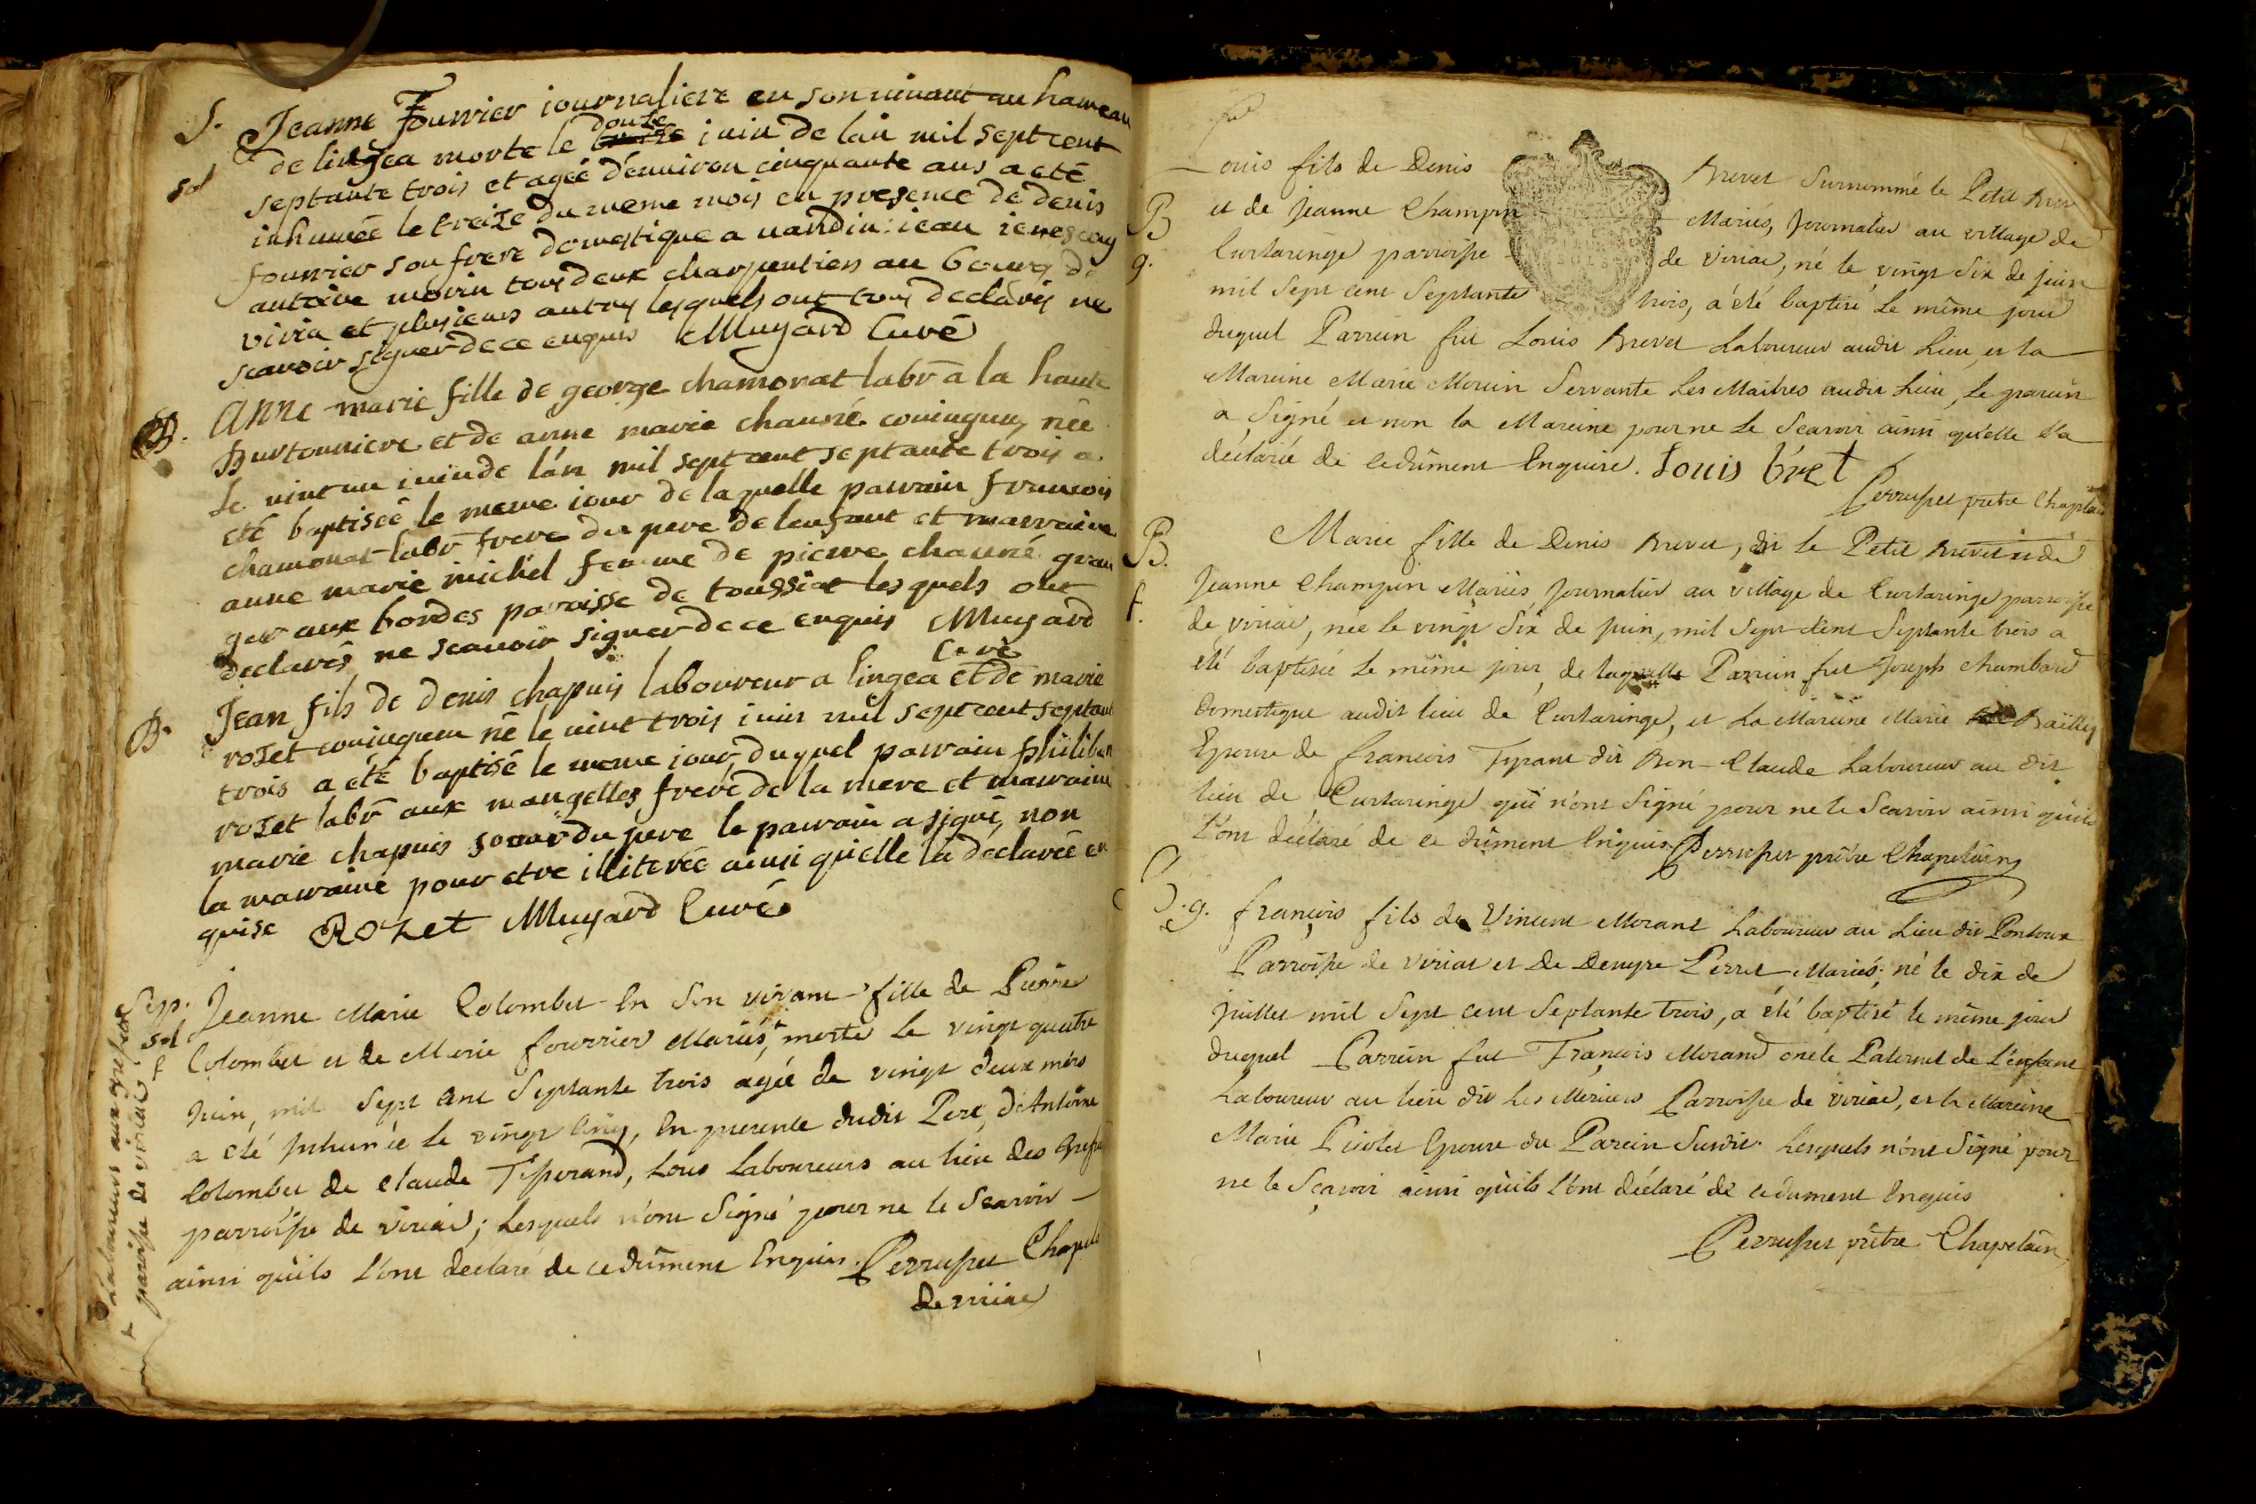 S.
sol
Jeanne Fourrier journaliere en son vivant au hameau
de lingea morte le douze juin de l'an mil sept cent
septante trois et agéé d'environ cinquante ans a eté
inhumeé le treize du meme mois en presence de denis
fourrier son frere domestique a nandin: jean
antoine morin tous deux charpentiers au bourg de
viria et plusieurs autres lesquels ont tous declarés ne
scavoir signer de ce enquis Mugard Curé
B.
Anne marie fille de george chamonat labr a la haute
burtonniere et de anne marie chauné conjugux, neé
le vint un juin de l'an mil sept cent septante trois a
eté baptiseé le meme jour de laquelle parrain francois
chamonat labr frere du pere de lenfant et marraine
anne marie michel femme de pierre chauné gran
ger aux bordes paroisse de toussiat lesquels ont
declarés ne scavoir signer de ce enquis Mugard
Curé
B.
Jean fils de denis chapuis laboureur a lingea et de marie
rozet conjugux né le vint trois juin mil sept cent septant
trois a eté baptisé le meme jour, duquel parrain philiber
rozet labr aux mangettes frere de la mere et marraine
marie chapuis soeur du pere le parrain a signé, non
la marraine pour etre illitereé ainsi qu'elle la declareé en
quise Rozet Mugard Curé
Sep.
sol
f
Jeanne Marie Colombet En Son vivant fille de Pierre
Colombet et de Marie fourrier Mariés, + morte Le vingt quatre
Juin, mil Sept Cent Septante trois agéé de vingt deux mois
a eté Inhuméé Le vingt Cinq, En presence dudit Pere, d'Antoine
Colombet de Claude Tisserand, tous Laboureurs au lieu des
parroisse de viriat; Lesquels n'ont Signé pour ne le Scavoir
ainsi qu'ils L'ont declaré de ce dûment Enquis. Perrusset Chapel
de viriat
+ Laboureurs aux
paroisse de viriat
B
g.
Louis fils de Denis Brevet Surnommé le Petit Brev
et de Jeanne Champin Mariés, Journalier au village de
Curtaringe parroisse de viriat, né le vingt Six de Juin
mil Sept cent Septante trois, a été baptisé Le même jour
duquel Parrein fut Louis Brevet Laboureur audit Lieu, et la
Mareine Marie Morin Servante Les Maitres audit Lieu, Le parein
a Signé et non la Mareine pour ne Le Scavoir ainsi qu'elle L'a
déclaré de ce dûment Enquise. Louis bret
Perrusset pretre Chapelain
B.
f.
Marie fille de Denis Brevet, dit le Petit Brevet et de
Jeanne Champin Mariés Journalier au village de Curtaringe parroisse
de viriat, neé le vingt Six de Juin, mil Sept Cent Septante trois a
été baptisée Le même jour, de laquelle Parrein fut Joseph Chambard
Domestique audit lieu de Curtaringe, et La Mareine Marie Bailley
Epouse de francois Tyrant dit Bon-Claude Laboureur au dit
lieu de Curtaringe qui n'ont Signé pour ne le Scavoir ainsi qu'ils
L'ont déclaré de ce dûment Enquis Perrusset prêtre Chapelain
B.g.
françois fils de Vincent Morant Laboureur au Lieu dit Pontoux
Parroisse de viriat et de Denyse Perret, Mariés; né le dix de
Juillet mil Sept cent Septante trois, a été baptisé le même jour
duquel Parrein fut François Morand oncle Paternel de L'enfant
Laboureur au lieu dit Les Meriers Parroisse de viriat, et la Mareine
Marie Picolet Epouse du Parein Susdit. Lesquels n'ont Signé pour
ne le Sçavoir ainsi qu'ils L'ont déclaré de ce dument Enquis
Perrusset prêtre Chapelain